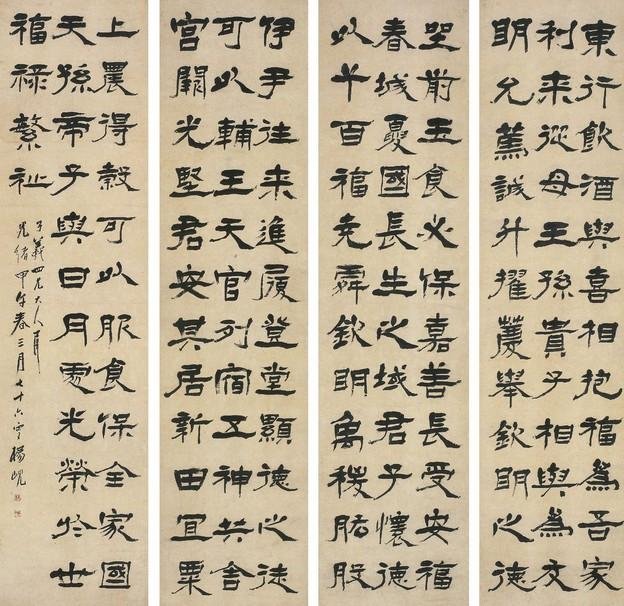 東行飲酒與喜相抱福為吾家
利來從母王孫貴子相與為交
明允篤誠升擢薦舉欽明之德
坐前玉食必保嘉善長受安福
春城夏國長生之域君子懷德
以千百福堯舜欽明禹稷肱股
伊尹往來進履登堂顯德之徒
可以輔王天官列宿五神共舍
宮闕光堅君安其居新田宜粟
上農得穀可以服食保全家國
天孫帝子與日月處光榮於世
福祿繁祉
子義四兄大人
光緒甲午春三月七十六叟楊峴